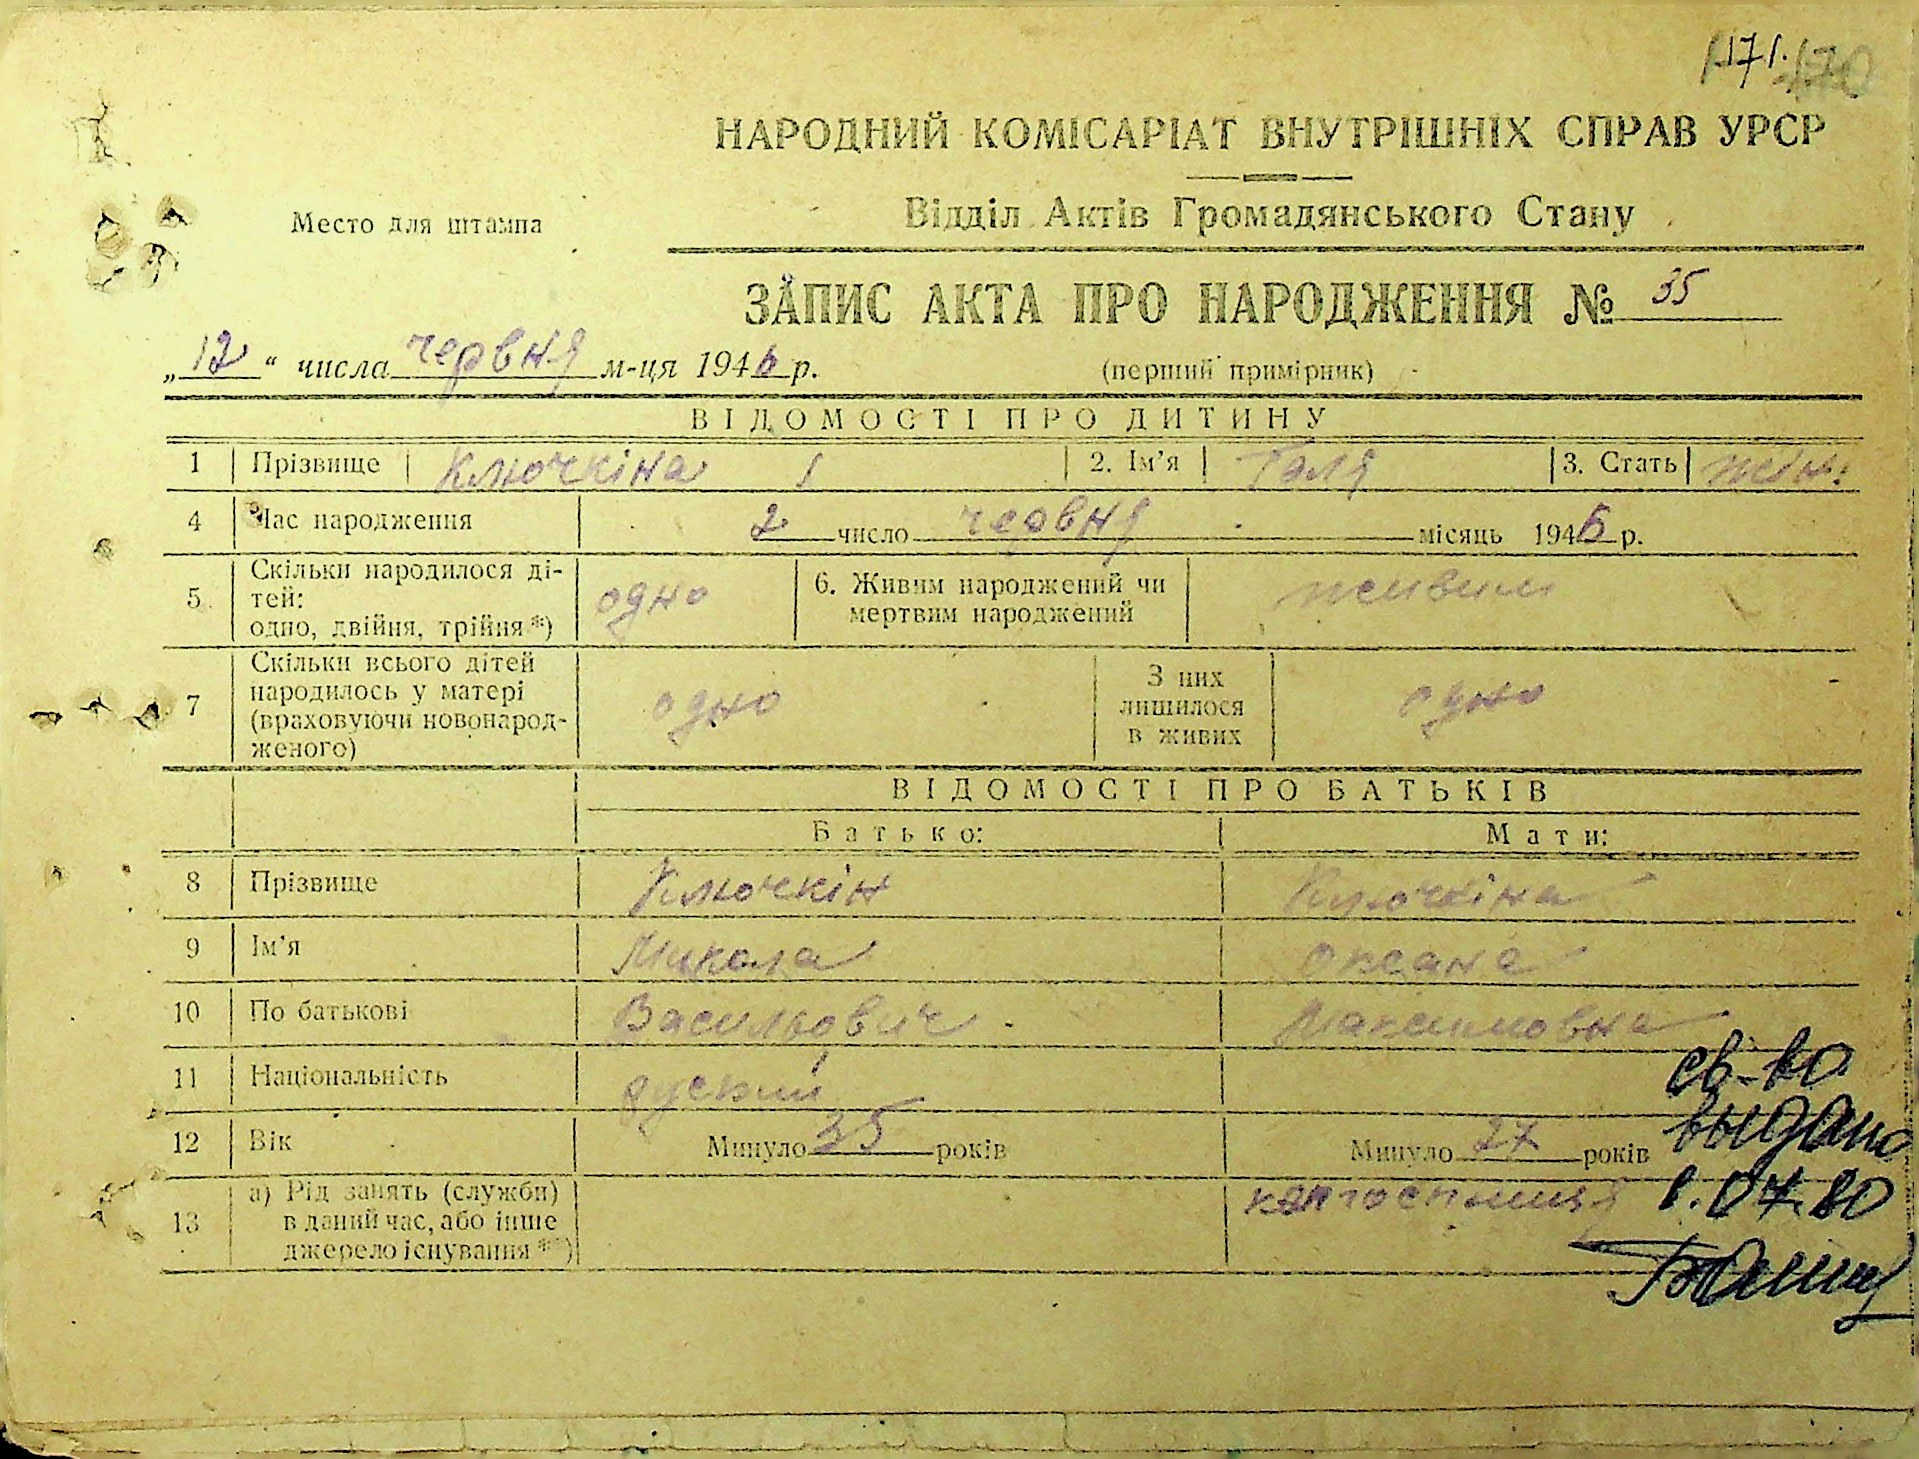 171. 170
НАРОДНИЙ КОМІСАРІАТ ВНУТРІШНІХ СПРАВ УРСР
Место для штампа
Відділ Актів Громадянського Стану
ЗАПИС АКТА ПРО НАРОДЖЕННЯ № 35
„12“ числа червня м-ця 1946 р. (перший примірник)
ВІДОМОСТІ ПРО ДИТИНУ
1 Прізвище Ключкіна 2. Ім'я Галя 3. Стать жін.
4 Час народження 2 число червня місяць 1946 р.
5 Скільки народилося ді-
тей:
одно, двійня, трійня *) одно 6. Живим народжений чи
мертвим народжений живим
7 Скільки всього дітей
народилось у матері
(враховуючи новонарод-
женого) одно З них
лишилося
в живих одно
ВІДОМОСТІ ПРО БАТЬКІВ
Батько: Мати:
8 Прізвище Ключкін Ключкіна
9 Ім'я Микола Оксана
10 По батькові Васильович Максимовна
11 Національність руский
12 Вік Минуло 35 років Минуло 27 років
13 а) Рід занять (служби)
в даний час, або інше
джерело існування **)
св-во
выдано
8.07.80